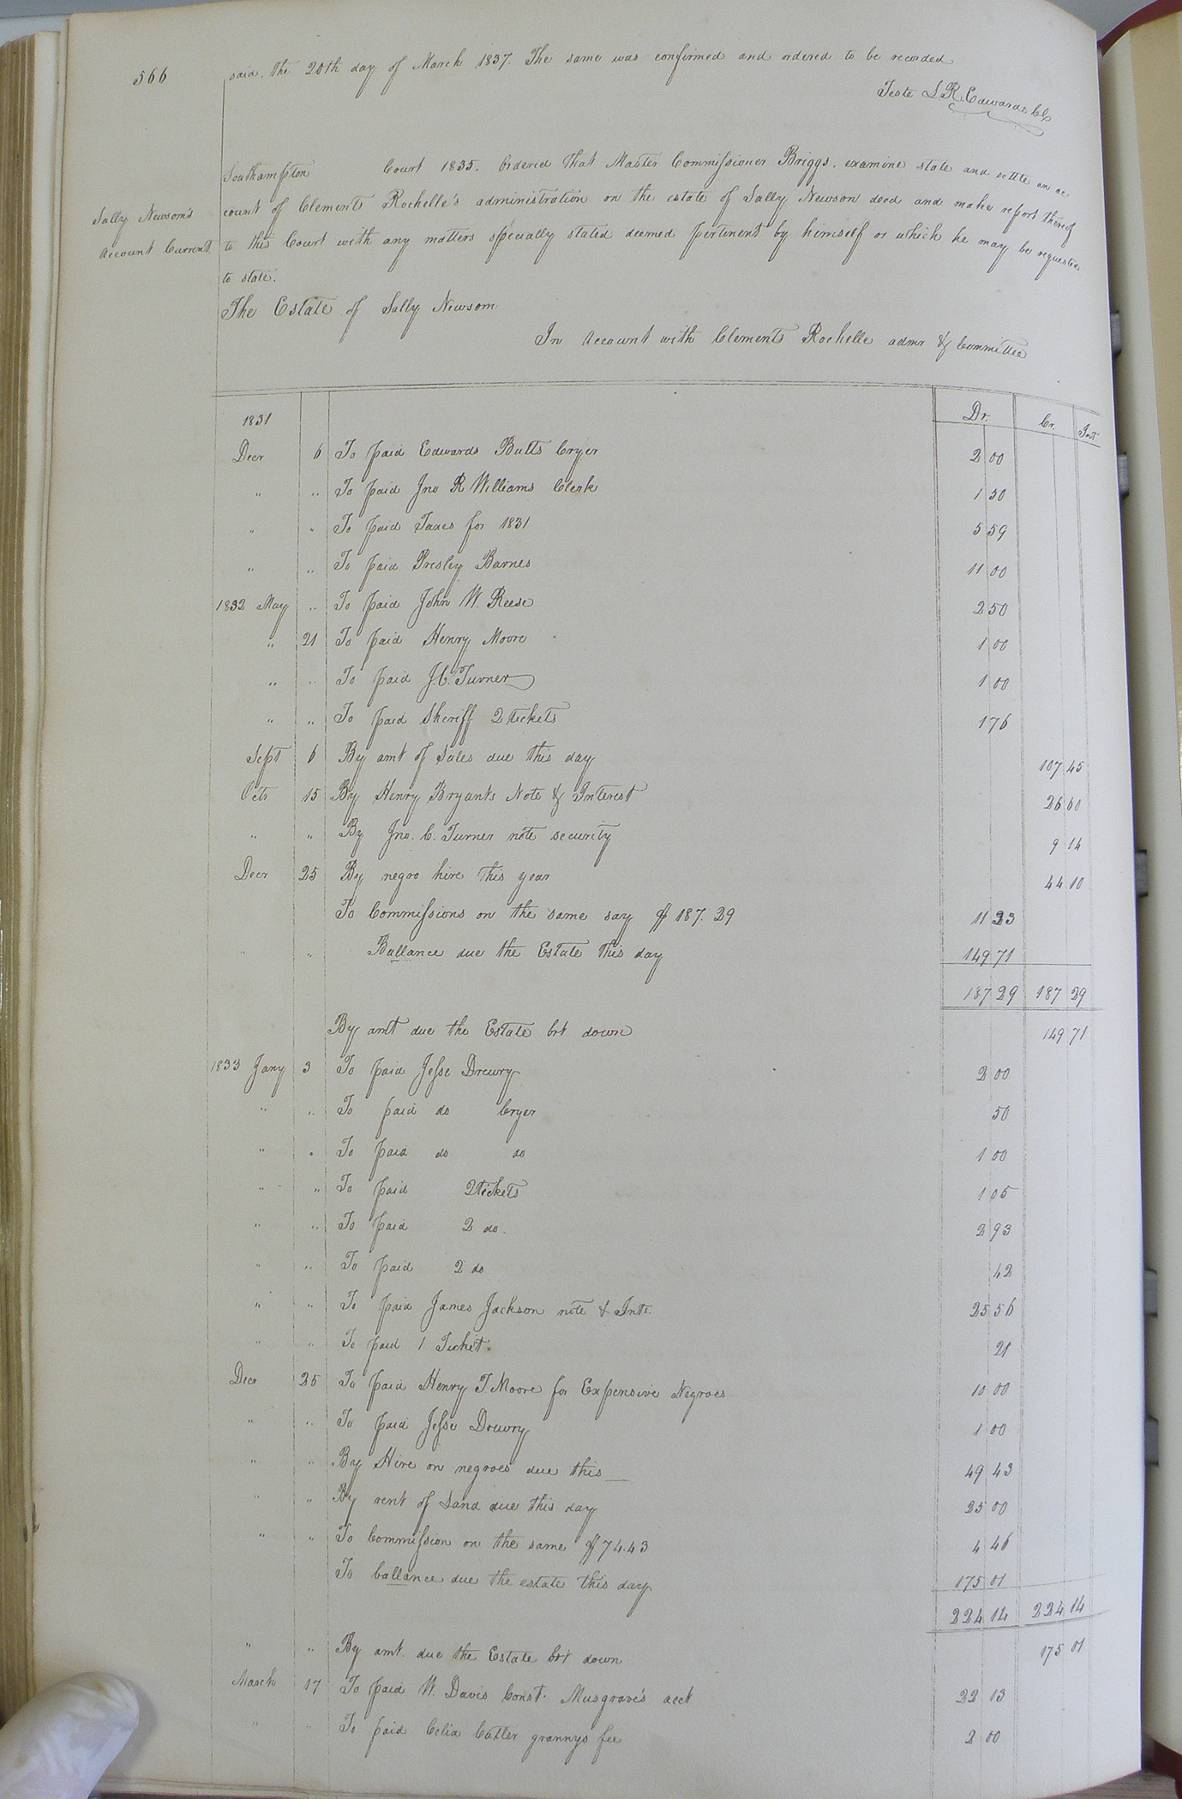 566
said, the 20th day of March 1837. The same was confirmed and ordered to be recorded
Teste L R Edwards Clk
Sally Newsom's
Account Current
Southampton Court 1835. Ordered that Master Commissioner Briggs, examine state and settle an ac
count of Clements Rochelle's administration on the estate of Sally Newsom decd and make report thereof
to this Court with any matters specially stated deemed pertinent by himself or which he may be requested
to state.
The Estate of Sally Newsom
In Account with Clements Rochelle admr & Committee
Dr. Cr. Int
1831
Decr 6 To paid Edwards Butts Cryer 2 00
" " To paid Jno R Williams Clerk 1 50
" " To paid Taxes for 1831 5 59
" " To paid Presley Barnes 11 00
1832 May " To paid John W. Reese 2 50
" 21 To paid Henry Moore 1 00
" " To paid J.C. Turner 1 00
" " To paid Sheriff 2 tickets 1 76
Sept 6 By amt of Sales due this day 107 45
Octr 15 By Henry Bryants Note & Interest 26 60
" " By Jno. C. Turner note security 9 14
Decr 25 By negro hire this year 44 10
To Commissions on the same say $187.29 11 23
" " Ballance due the Estate this day 149 71
187 29 187 29
By amt due the Estate brt down 149 71
1833 Jany 3 To paid Jesse Drewry 2 00
" " To paid do Cryer 50
" " To paid do do 1 00
" " To paid 2 tickets 1 05
" " To paid 2 do. 2 93
" " To paid 2 do 42
" " To paid James Jackson note & Int. 25 56
" " To paid 1 Ticket. 21
Decr 25 To paid Henry T Moore for Expensive Negroes 10 00
" " To paid Jesse Drewry 1 00
" " By Hire on negroes due this 49 43
" " By rent of Land due this day 25 00
" " To Commission on the same $74.43 4 46
To ballance due the estate this day 175 01
224 14 224 14
" " By amt due the Estate brt down 175 01
March 17 To paid W. Davis Const. Musgrave's acct 22 13
" " To paid Celia Catler grannys fee 2 00